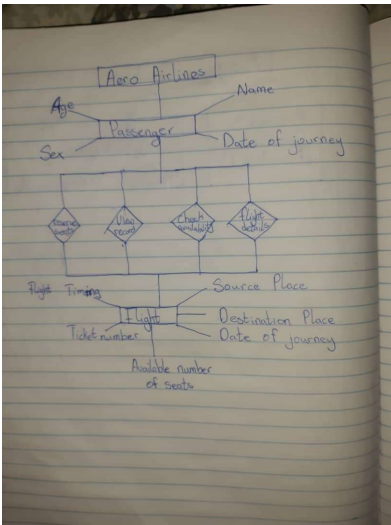 Aero Airlines
Age
Name
Passenger
Sex
Date of journey
Reserve seats
View record
Check availability
Flight details
Timing
Source Place
Flight
Destination Place
Ticket number
Date of journey
Available number
of seats